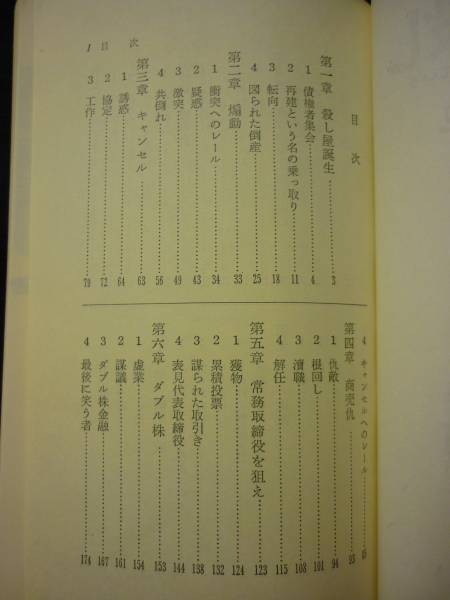 目次
第一章 殺し屋誕生……3
1 債権者集会……4
2 再建という名の乗っ取り……11
3 転向……18
4 図られた倒産……25
第二章 煽動……33
1 衝突へのレール……34
2 疑惑……43
3 激突……49
4 共倒れ……56
第三章 キャンセル……63
1 誘惑……64
2 協定……72
3 工作……79
1 目次
4 キャンセルへのレール……85
第四章 商売仇……93
1 仇敵……94
2 根回し……101
3 瀆職……108
4 解任……115
第五章 常務取締役を狙え……123
1 獲物……124
2 累積投票……132
3 謀られた取引き……138
4 表見代表取締役……144
第六章 ダブル株……153
1 虚業……154
2 謀議……161
3 ダブル株金融……167
4 最後に笑う者……174